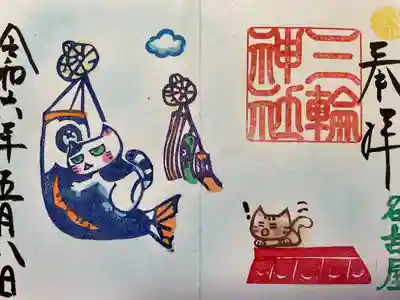 奉拝
三輪
神社
名古屋
令和六年五月八日
!